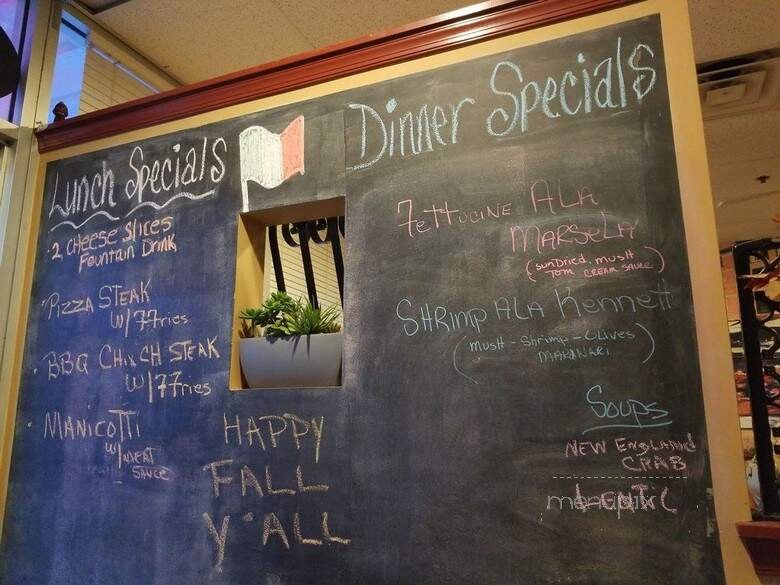 Lunch Specials
• 2 CHEESE Slices
Fountain Drink
• PIZZA STEAK
W/FFries
• BBQ CHIX CH STEAK
W/FFries
• MANICOTTI
W/MEAT
SAUCE
HAPPY
FALL
Y'ALL
Dinner Specials
FETTUCINE ALA
MARSELA
(SUNDRIED, MUSH
TOM CREAM SAUCE)
SHRIMP ALA Kennett
(MUSH - Shrimp - OLIVES
MARANARI)
Soups
NEW ENGLAND
CRAB
LENTIL
menupix